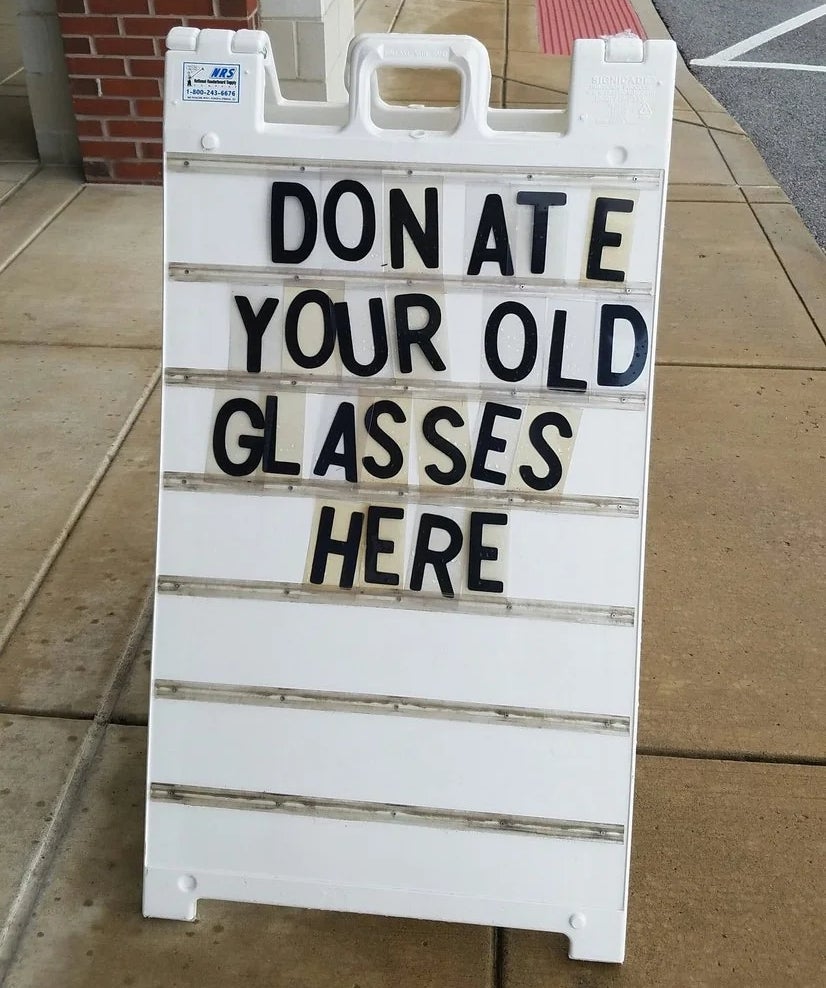 NRS
National Readerboard Supply
1-800-243-6676
SIGNICADE
DONATE
YOUR OLD
GLASSES
HERE